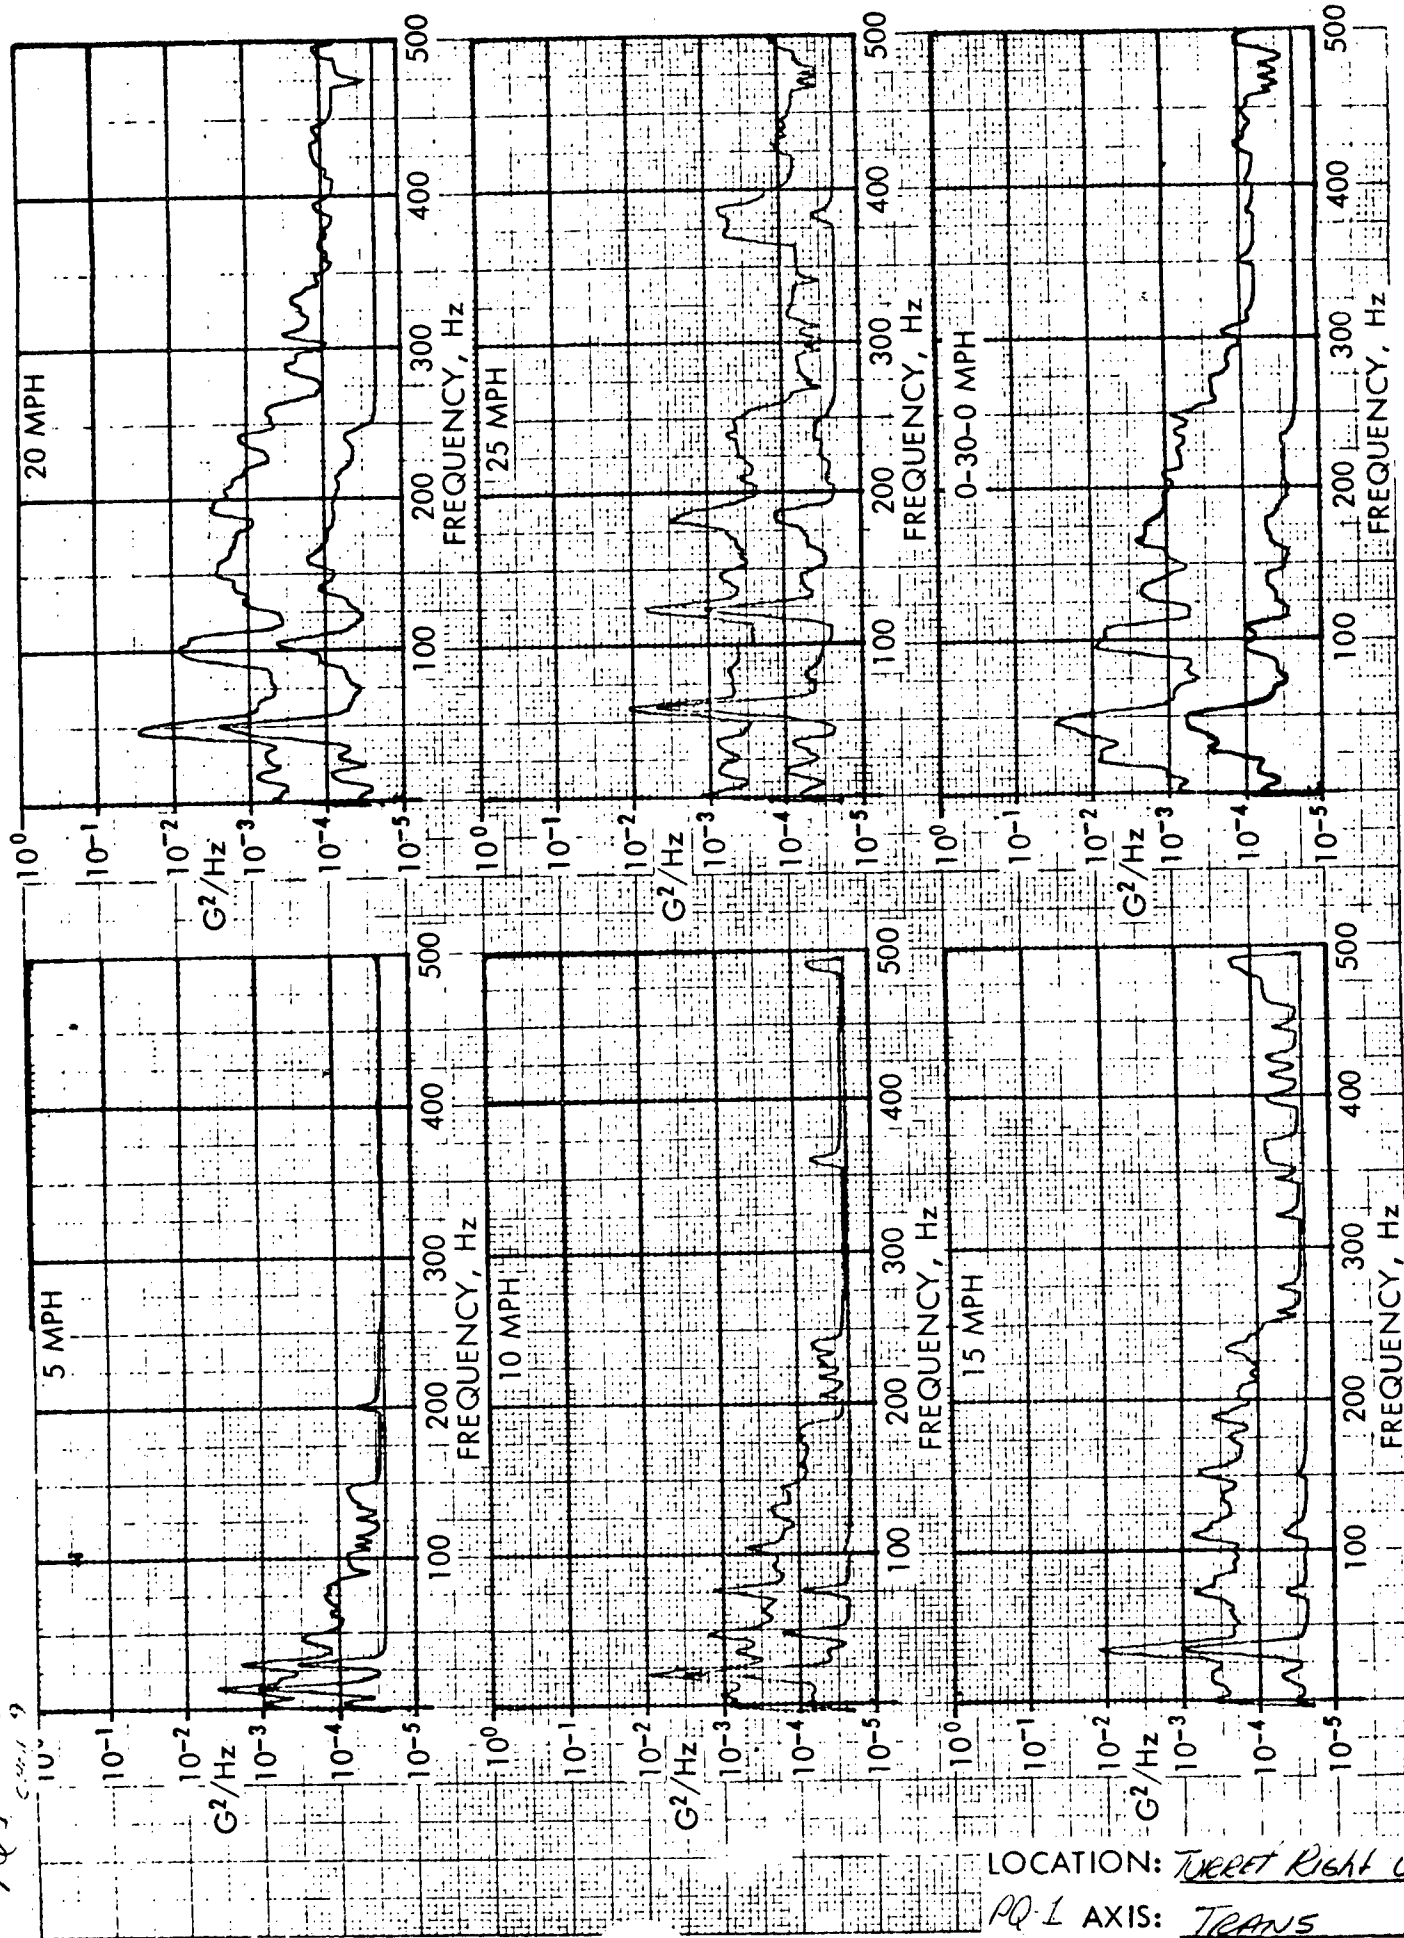 5 MPH
10⁰
10⁻¹
10⁻²
G²/Hz
10⁻³
10⁻⁴
10⁻⁵
100 200 300 400 500
FREQUENCY, Hz
10 MPH
10⁰
10⁻¹
10⁻²
G²/Hz
10⁻³
10⁻⁴
10⁻⁵
100 200 300 400 500
FREQUENCY, Hz
15 MPH
10⁰
10⁻¹
10⁻²
G²/Hz
10⁻³
10⁻⁴
10⁻⁵
100 200 300 400 500
FREQUENCY, Hz
20 MPH
10⁰
10⁻¹
10⁻²
G²/Hz
10⁻³
10⁻⁴
10⁻⁵
100 200 300 400 500
FREQUENCY, Hz
25 MPH
10⁰
10⁻¹
10⁻²
G²/Hz
10⁻³
10⁻⁴
10⁻⁵
100 200 300 400 500
FREQUENCY, Hz
0-30-0 MPH
10⁰
10⁻¹
10⁻²
G²/Hz
10⁻³
10⁻⁴
10⁻⁵
100 200 300 400 500
FREQUENCY, Hz
LOCATION: TURRET Right
PQ-1 AXIS: TRANS